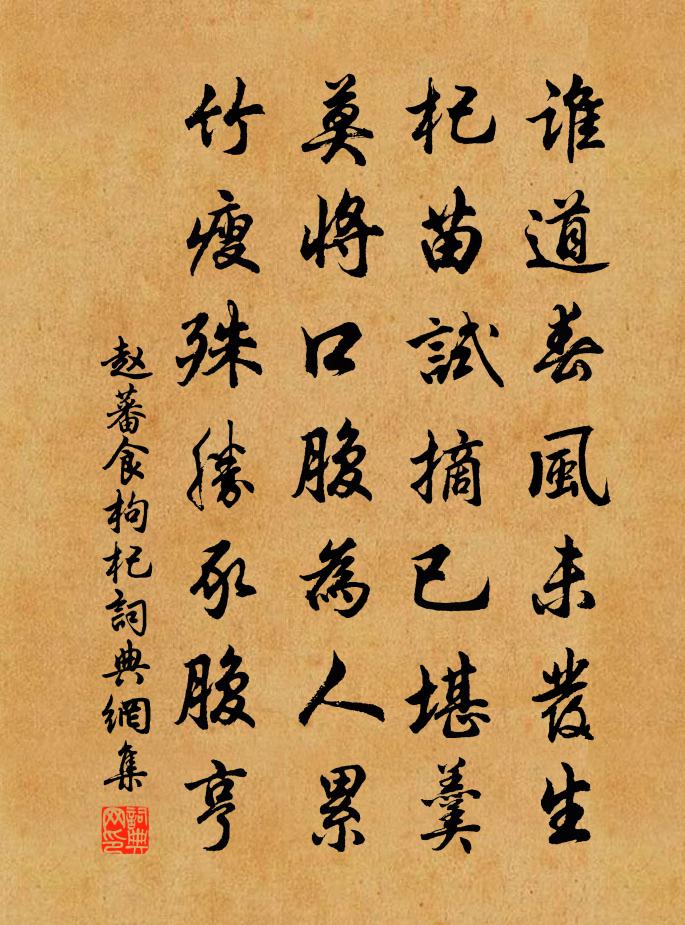 誰道春風未發生
杞苗試摘已堪羹
莫將口腹為人累
竹瘦殊勝豕腹亨
赵蕃食枸杞詞典網集
詞典网印